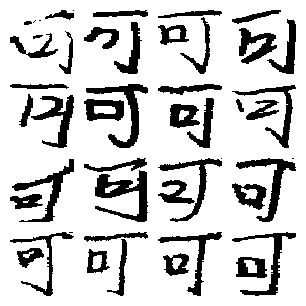 可可可可
可可可可
可可可可
可可可可